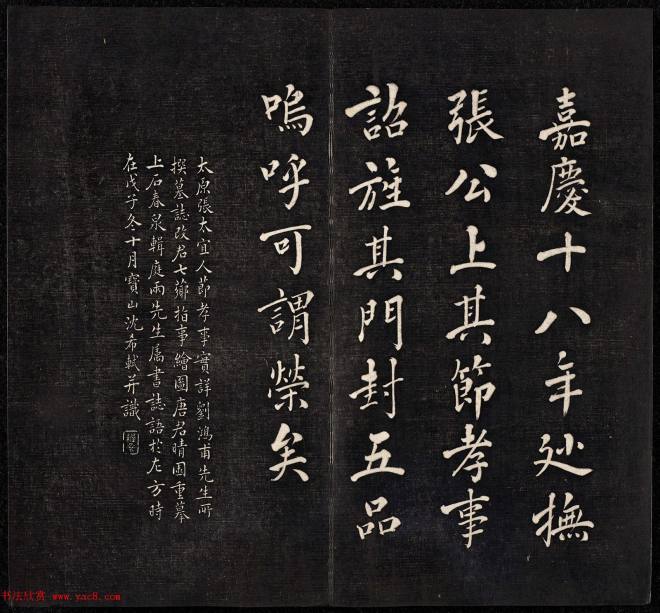 嘉慶十八年巡撫
張公上其節孝事
詔旌其門封五品
嗚呼可謂榮矣
太原張太宜人節孝事實詳劉鴻甫先生所
撰墓誌改君七薌指事繪圖唐君晴圃重摹
上石春泉輯庭兩先生屬書誌語於左方時
在戊子冬十月寶山沈希軾并識
书法欣赏 www.yac8.com